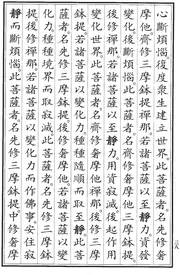 心斷煩惱後度衆生建立世界此菩薩者名先修奢
摩他齊修三摩鉢提禪那若諸菩薩以至靜力資發
變化後斷煩惱此菩薩者名齊修奢摩他三摩鉢提
後修禪那若諸菩薩以至靜力用資寂滅後起作用
變化世界此菩薩者名齊修奢摩他禪那後修三摩
鉢提若諸菩薩以變化力種種隨順而取至靜此菩
薩者名先修三摩鉢提後修奢摩他若諸菩薩以變
化力種種境界而取寂滅此菩薩者名先修三摩鉢
提後修禪那若諸菩薩以變化力而作佛事安住寂
靜而斷煩惱此菩薩者名先修三摩鉢提中修奢摩